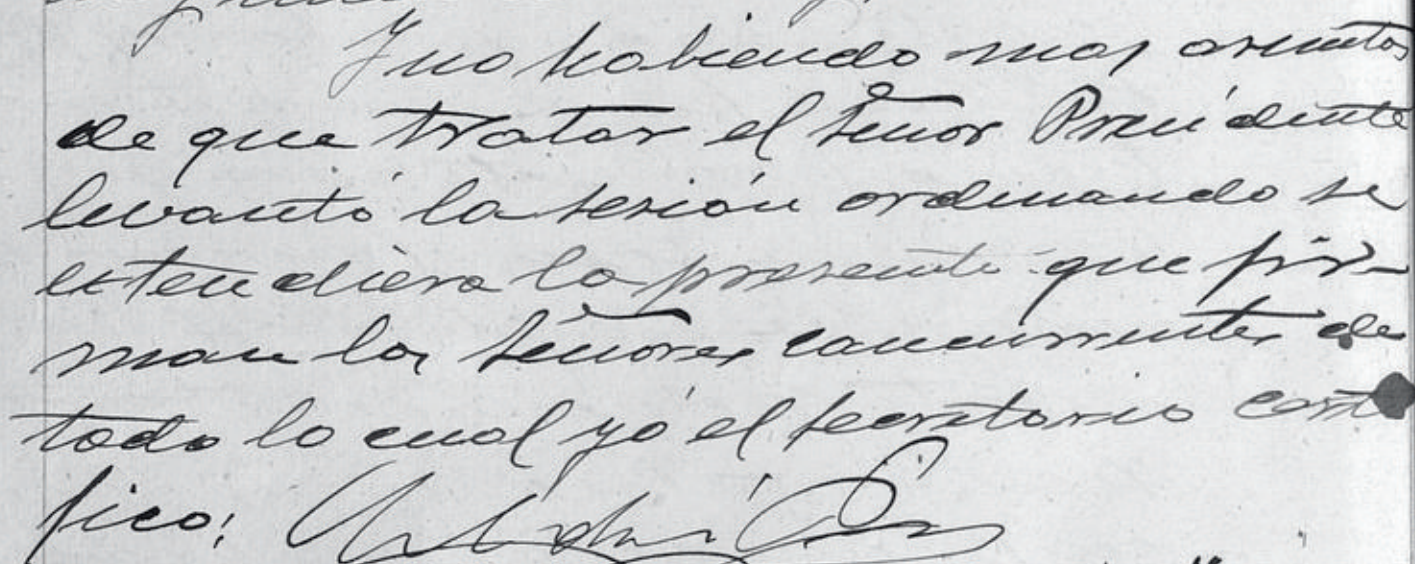 Y no habiendo mas asuntos
de que tratar el señor Presidente
levantó la sesión ordenando se
extendiera la presente que fir-
man los señores concurrentes de
todo lo cual yó el secretario certi
fico: